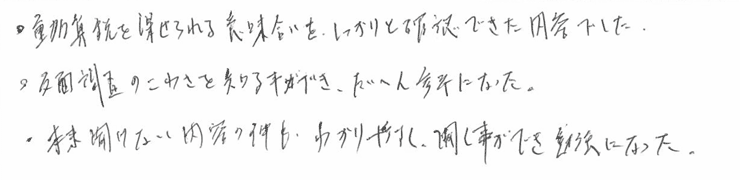 ・重加算税を課せられる意味合いを、しっかりと確認できた内容でした.
・反面調査のこわさを知る事ができ、たいへん参考になった。
・本来聞けない内容の件も、わかりやすく、聞く事ができ勉強になった。